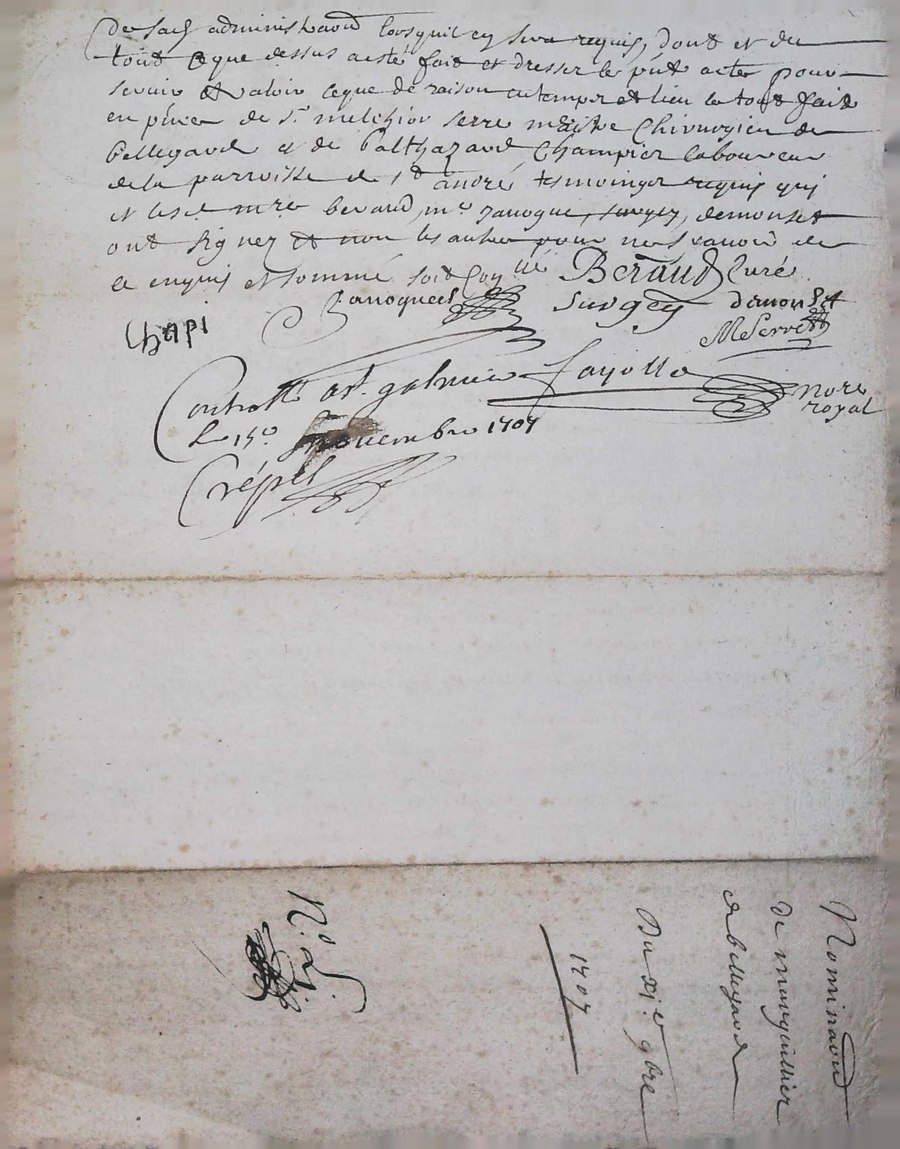 de sad administraon lorsquil en sera requis, dont et du
tout ce que dessus acte fait et dresser le pnt acte pour
servir et valoir ceque de raison en temps et lieu le tout fait
en pnce de Sr melchior serre maistre chirurgien de
bellegarde et de balthazard Champier laboureur
de la parroisse de St andré tesmoingz requis qui
et lesd mre beraud, me ranoque, surgey, demonset
ont signez et non les autres pour ne scavoir de
ce enquis et sommé soit conllé Beraud Curé
Ranoque surgey demonset
Chapi MSerre
Controllé a St galmier fayolle nore
royal
le 15e novembre 1707
Crépet
Nominaon
de marguillier
de bellegarde
Du xie 9bre
1707
N.o